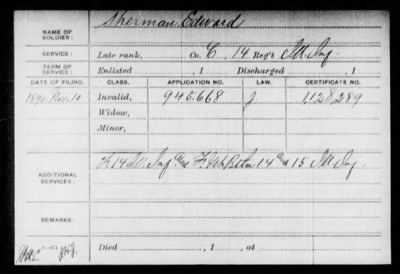 NAME OF SOLDIER: Sherman Edward
SERVICE: Late rank, Co. C, 14 Reg't Ill. Inf.
TERM OF SERVICE: Enlisted , 1 Discharged , 1
DATE OF FILING. CLASS. APPLICATION NO. LAW. CERTIFICATE NO.
1890 Nov. 10. Invalid, 945.668 J. 1,128,289
Widow,
Minor,
ADDITIONAL SERVICES. F. 14 Ill. Inf. F. Vet. Batn 14 15 Ill. Inf.
REMARKS:
Died , 1 , at